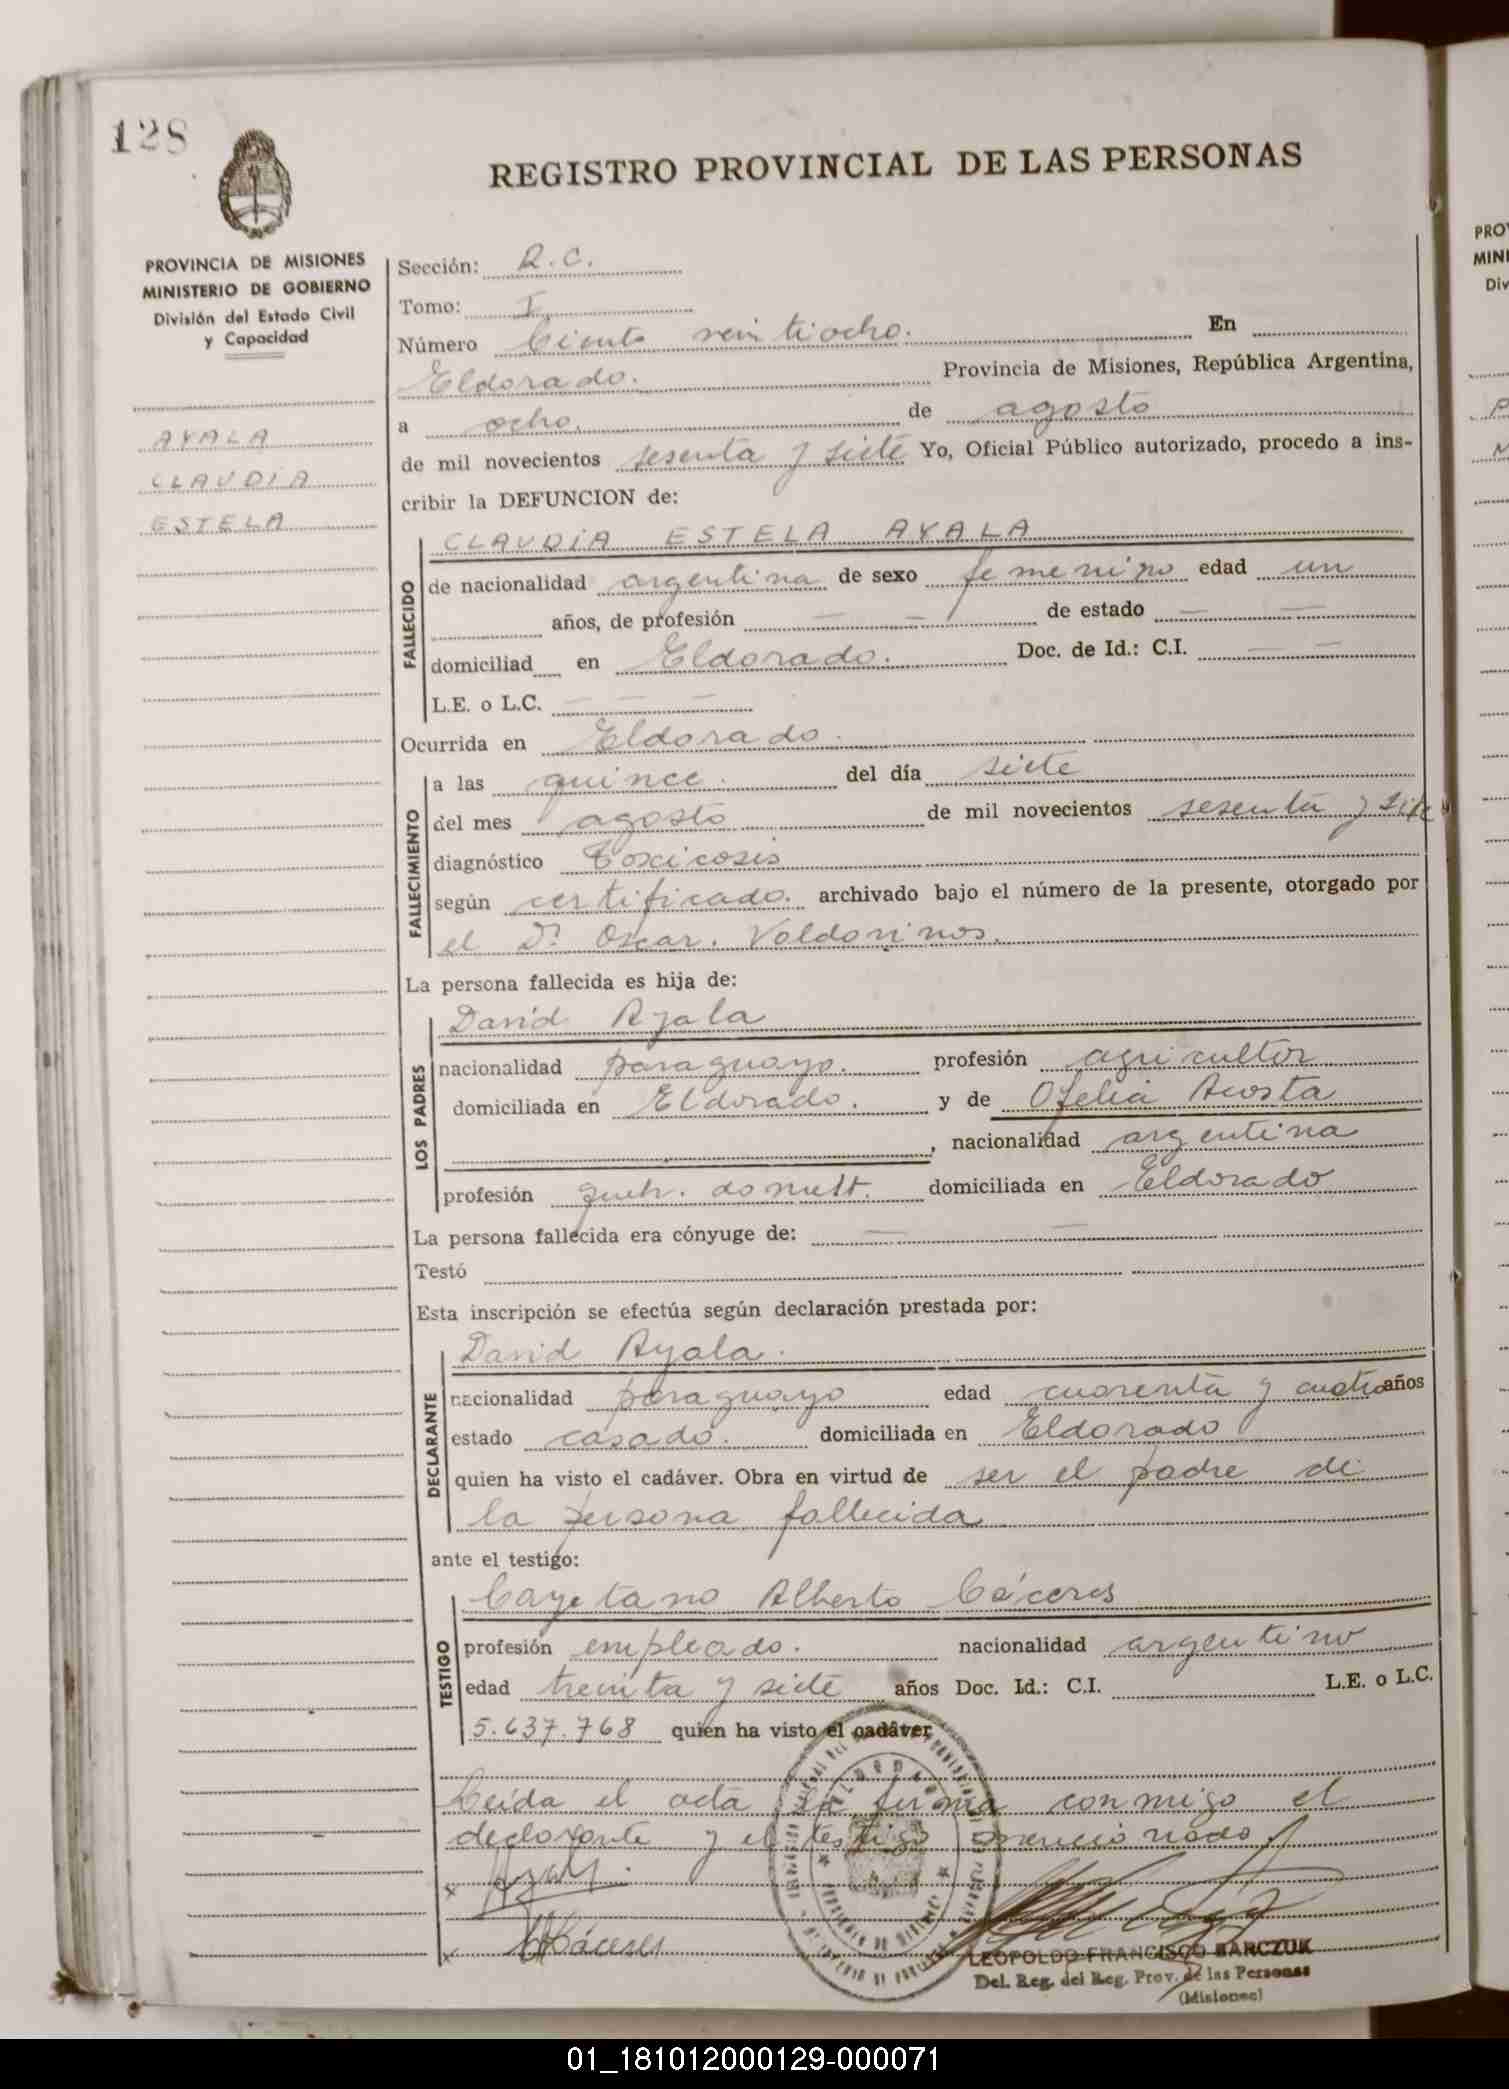 128
REGISTRO PROVINCIAL DE LAS PERSONAS
PROVINCIA DE MISIONES
MINISTERIO DE GOBIERNO
División del Estado Civil
y Capacidad
AYALA
CLAUDIA
ESTELA
Sección: R.C.
Tomo: I
Número Ciento veintiocho. En
Eldorado. Provincia de Misiones, República Argentina,
a ocho. de agosto
de mil novecientos sesenta y siete Yo, Oficial Público autorizado, procedo a ins-
cribir la DEFUNCION de:
FALLECIDO
CLAUDIA ESTELA AYALA
de nacionalidad argentina de sexo femenino edad un
años, de profesión — — de estado — —
domiciliad en Eldorado. Doc. de Id.: C.I. — —
L.E. o L.C. — — —
Ocurrida en Eldorado.
FALLECIMIENTO
a las quince. del día siete
del mes agosto de mil novecientos sesenta y siete
diagnóstico Toxicosis
según certificado. archivado bajo el número de la presente, otorgado por
el Dr. Oscar. Valdovinos.
La persona fallecida es hija de:
LOS PADRES
David Ayala
nacionalidad paraguayo. profesión agricultor
domiciliada en Eldorado. y de Ofelia Acosta
, nacionalidad argentina
profesión domiciliada en Eldorado
La persona fallecida era cónyuge de: — —
Testó
Esta inscripción se efectúa según declaración prestada por:
DECLARANTE
David Ayala.
nacionalidad paraguayo edad cuarenta y cuatro años
estado casado. domiciliada en Eldorado
quien ha visto el cadáver. Obra en virtud de ser el padre de
la persona fallecida
ante el testigo:
TESTIGO
Cayetano Alberto Cáceres
profesión empleado. nacionalidad argentino
edad treinta y siete años Doc. Id.: C.I. L.E. o L.C.
5.637.768 quien ha visto el cadáver
Leída el acta la firma conmigo el
declarante y el testigo mencionado
x Ayala.
x Cáceres
LEOPOLDO FRANCISCO BARCZUK
Del. Reg. del Reg. Prov. de las Personas
(Misiones)
PRO
MINI
Div
01_181012000129-000071